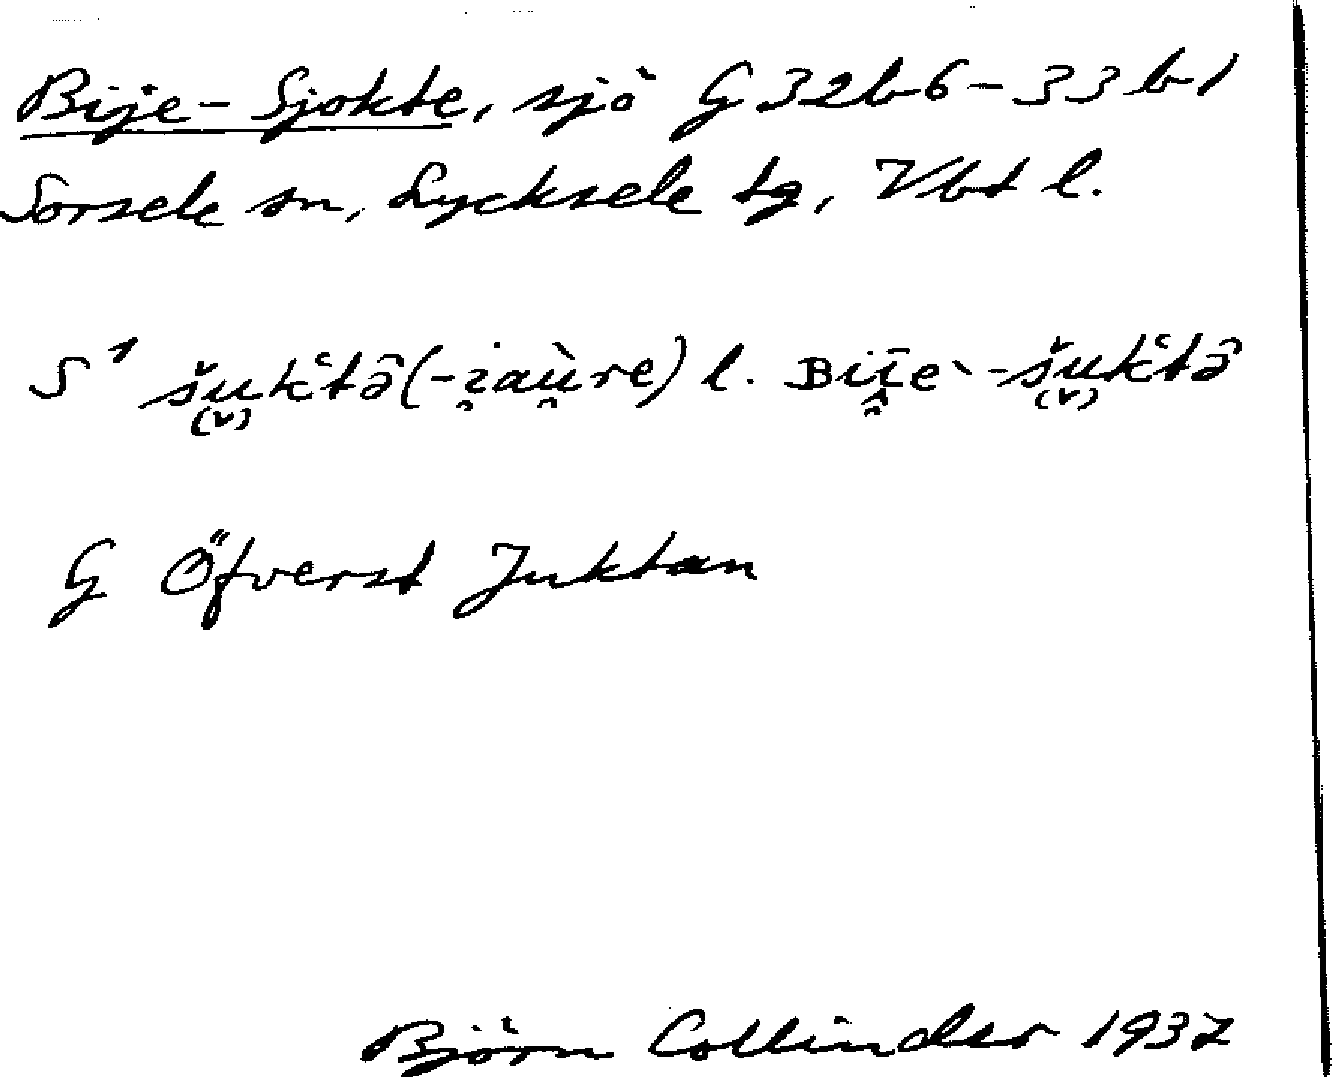 Bije-Sjokte, sjö G 32b6-33b1
Sorsele sn, Lycksele tg, Vbt l.
S¹ šuk‘tə̄(-i̯aùre) l. Bīi̯e`-šuk‘tə̄
G Öfverst Juktan
Björn Collinder 1937